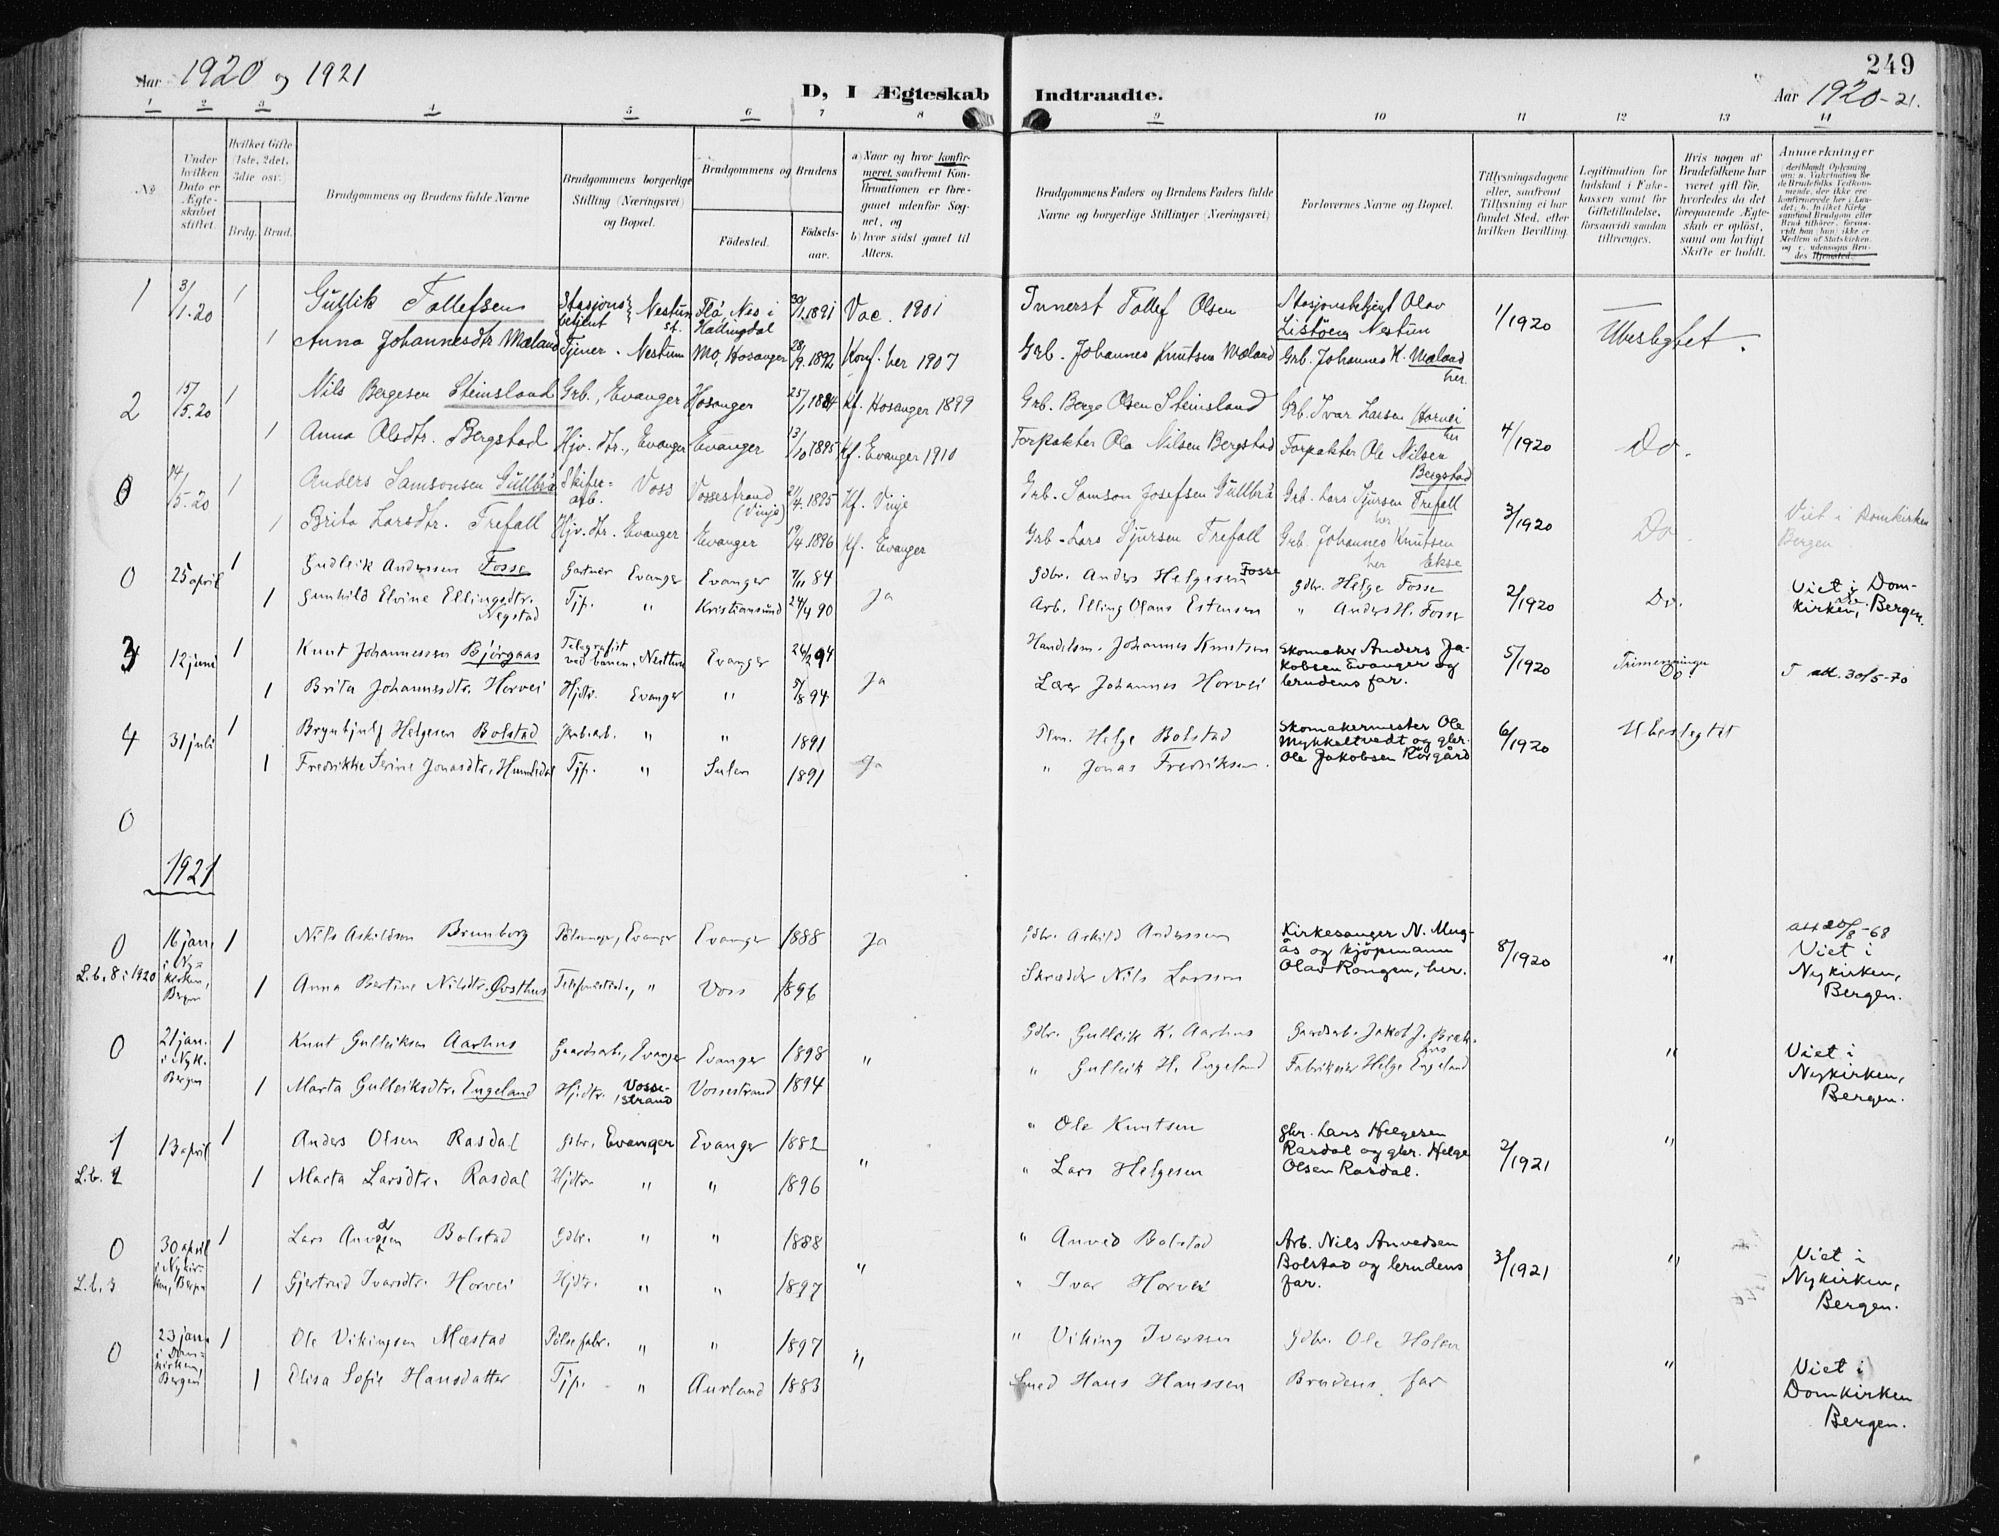 249
Aar 1920 og 1921
D, I Ægteskab Indtraadte.
Aar 1920-21.
1 2 3 4 5 6 7 8 9 10 11 12 13 14
№
Under hvilken Dato er Ægteskabet stiftet.
Hvilket Gifte 1ste, 2det, 3die osv.
Brdg. Brud.
Brudgommens og Brudens fulde Navne
Brudgommens borgerlige Stilling (Næringsvei) og Bopæl.
Brudgommens og Brudens
Fødested.
Fødselsaar.
a) Naar og hvor konfirmeret, saafremt Konfirmationen er foregaaet udenfor Sognet, og
b) hvor sidst gaaet til Alters.
Brudgommens Faders og Brudens Faders fulde Navne og borgerlige Stillinger (Næringsvei)
Forlovernes Navne og Bopæl.
Tillysningsdagene eller, saafremt Tillysning ei har fundet Sted, efter hvilken Bevilling.
Legitimation for Indskud i Enkekassen samt for Giftetilladelse, forsaavidt saadan tiltrænges.
Hvis nogen af Brudefolkene har været gift før, hvorledes da det foregaaende Ægteskab er opløst, samt om lovligt Skifte er holdt.
Anmerkninger
1 3/1.20 1 Gullik Tollefsen Stasjonsbetjent Nestun st. Flå, Nes i Hallingdal 30/1 1891 Vac. 1901 Innerst Tollef Olsen Stasjonsbetjent Olav Listøen Nestun 1/1920 Ubeslegtet.
1 Anna Johannesdtr Mæland Tjener. Nestun Mo, Hosanger 28/9 1892 Konf. her 1907 Grb. Johannes Knutsen Mæland Grb. Johannes K. Mæland her.
2 15/5.20 1 Nils Bergesen Steinsland Grb., Evanger Hosanger 25/1 1884 Kf. Hosanger 1899 Grb. Berge Olsen Steinsland Grb. Ivar Larsen Horvei her 4/1920 Do.
1 Anna Olsdtr. Bergstad Hjv. dtr., Evanger Evanger 13/10 1895 Kf. Evanger 1910 Forpakter Ola Nilsen Bergstad Forpakter Ole Nilsen Bergstad
0 14/5.20 1 Anders Samsonsen Gullbrå Skiferarb. Voss Vossestrand (Vinje) 21/4 1895 Kf. Vinje Grb. Samson Josefsen Gullbrå Grb. Lars Sjursen Trefall her 3/1920 Do. Viet i Domkirken Bergen
1 Brita Larsdtr. Trefall Hjv. dtr. Evanger Evanger 19/4 1896 Kf. Evanger Grb. Lars Sjursen Trefall Grb. Johannes Knutsen Ekse her
0 25 april 1 Gudleik Anderssen Fosse Gartner Evanger Evanger 7/11 84 Ja Gdbr. Anders Helgesen Fosse Gdbr. Helge Fosse 2/1920 Do. Viet i Domkirken, Bergen.
1 Gunhild Elvine Ellingsdtr. Negstad Tjp. " Kristiansund 24/4 90 Arb. Elling Olaus Estensen " Anders H. Fosse
3 12 juni 1 Knut Johannessen Bjørgaas Telegrafist ved banen, Nesttun Evanger 26/2 94 Ja Handelsm. Johannes Knutsen Skomaker Anders Jakobsen Evanger og brudens far. 5/1920 Tremenninger Do. T att. 30/5-70
1 Brita Johannesdtr. Horvei Hjdtr. Evanger " 5/8 94 Lærer Johannes Horvei
4 31 juli 1 Brynhjulf Helgesen Bolstad Jernb.arb. " " 1891 Ja Plm. Helge Bolstad Skomakermester Ole Mykkeltvedt og gbr. Ole Jakobsen Rørgård 6/1920 Ubeslegtet
1 Fredrikke Serine Jonasdtr. Humlestøl Tjp. " Sulen 1891 " Jonas Fredriksen
0
1921
0 16 jan. i Nykirken, Bergen 1 Nils Askildsen Brunborg Pølsemager, Evanger Evanger 1888 Ja Gdbr. Askild Anderssen Kirkesanger N. Mugås og kjøpmann Olav Rongen, her. 8/1920 " att 20/8-68 Viet i Nykirken, Bergen.
L.b. 8 i 1920 1 Anna Bertine Nilsdtr. Øvsthus Telefonistinde, " Voss 1896 Skrædder Nils Larssen
0 21 jan. i Nyk. Bergen 1 Knut Gulleiksen Aarhus Gaardsarb., Evanger Evanger 1898 " Gdbr. Gulleik K. Aarhus Gaardsarb. Jakob J. Brækhus " Viet i Nykirken, Bergen.
1 Marta Gulleiksdtr. Engeland Hjdtr. Vossestrand Vossestrand 1894 " Gulleik H. Engeland Fabrikeier Helge Engeland
1 13 april 1 Anders Olsen Rasdal Gdbr. Evanger Evanger 1882 " " Ole Knutsen gbr. Lars Helgesen Rasdal og gbr. Helge Olsen Rasdal. 2/1921 "
L.b. 2 1 Marta Larsdtr. Rasdal Hjdtr. " " 1896 " Lars Helgesen
0 30 april i Nykirken, Bergen 1 Lars Anvedsen Bolstad Gdbr. " " 1888 " " Anved Bolstad Arb. Nils Anvedsen Bolstad og brudens far. 3/1921 " Viet i Nykirken, Bergen.
L.b. 3 1 Gjertrud Ivarsdtr. Horvei Hjdtr. " " 1897 " Ivar Horvei
0 23 jan. i Domkirken, Bergen 1 Ole Vikingsen Mæstad Pølsefabr. " " 1897 " " Viking Iverssen Gdbr. Ole Hosen " Viet i Domkirken Bergen.
1 Elisa Sofie Hansdatter Tjp. " Aurland 1883 Smed Hans Hanssen Brudens far